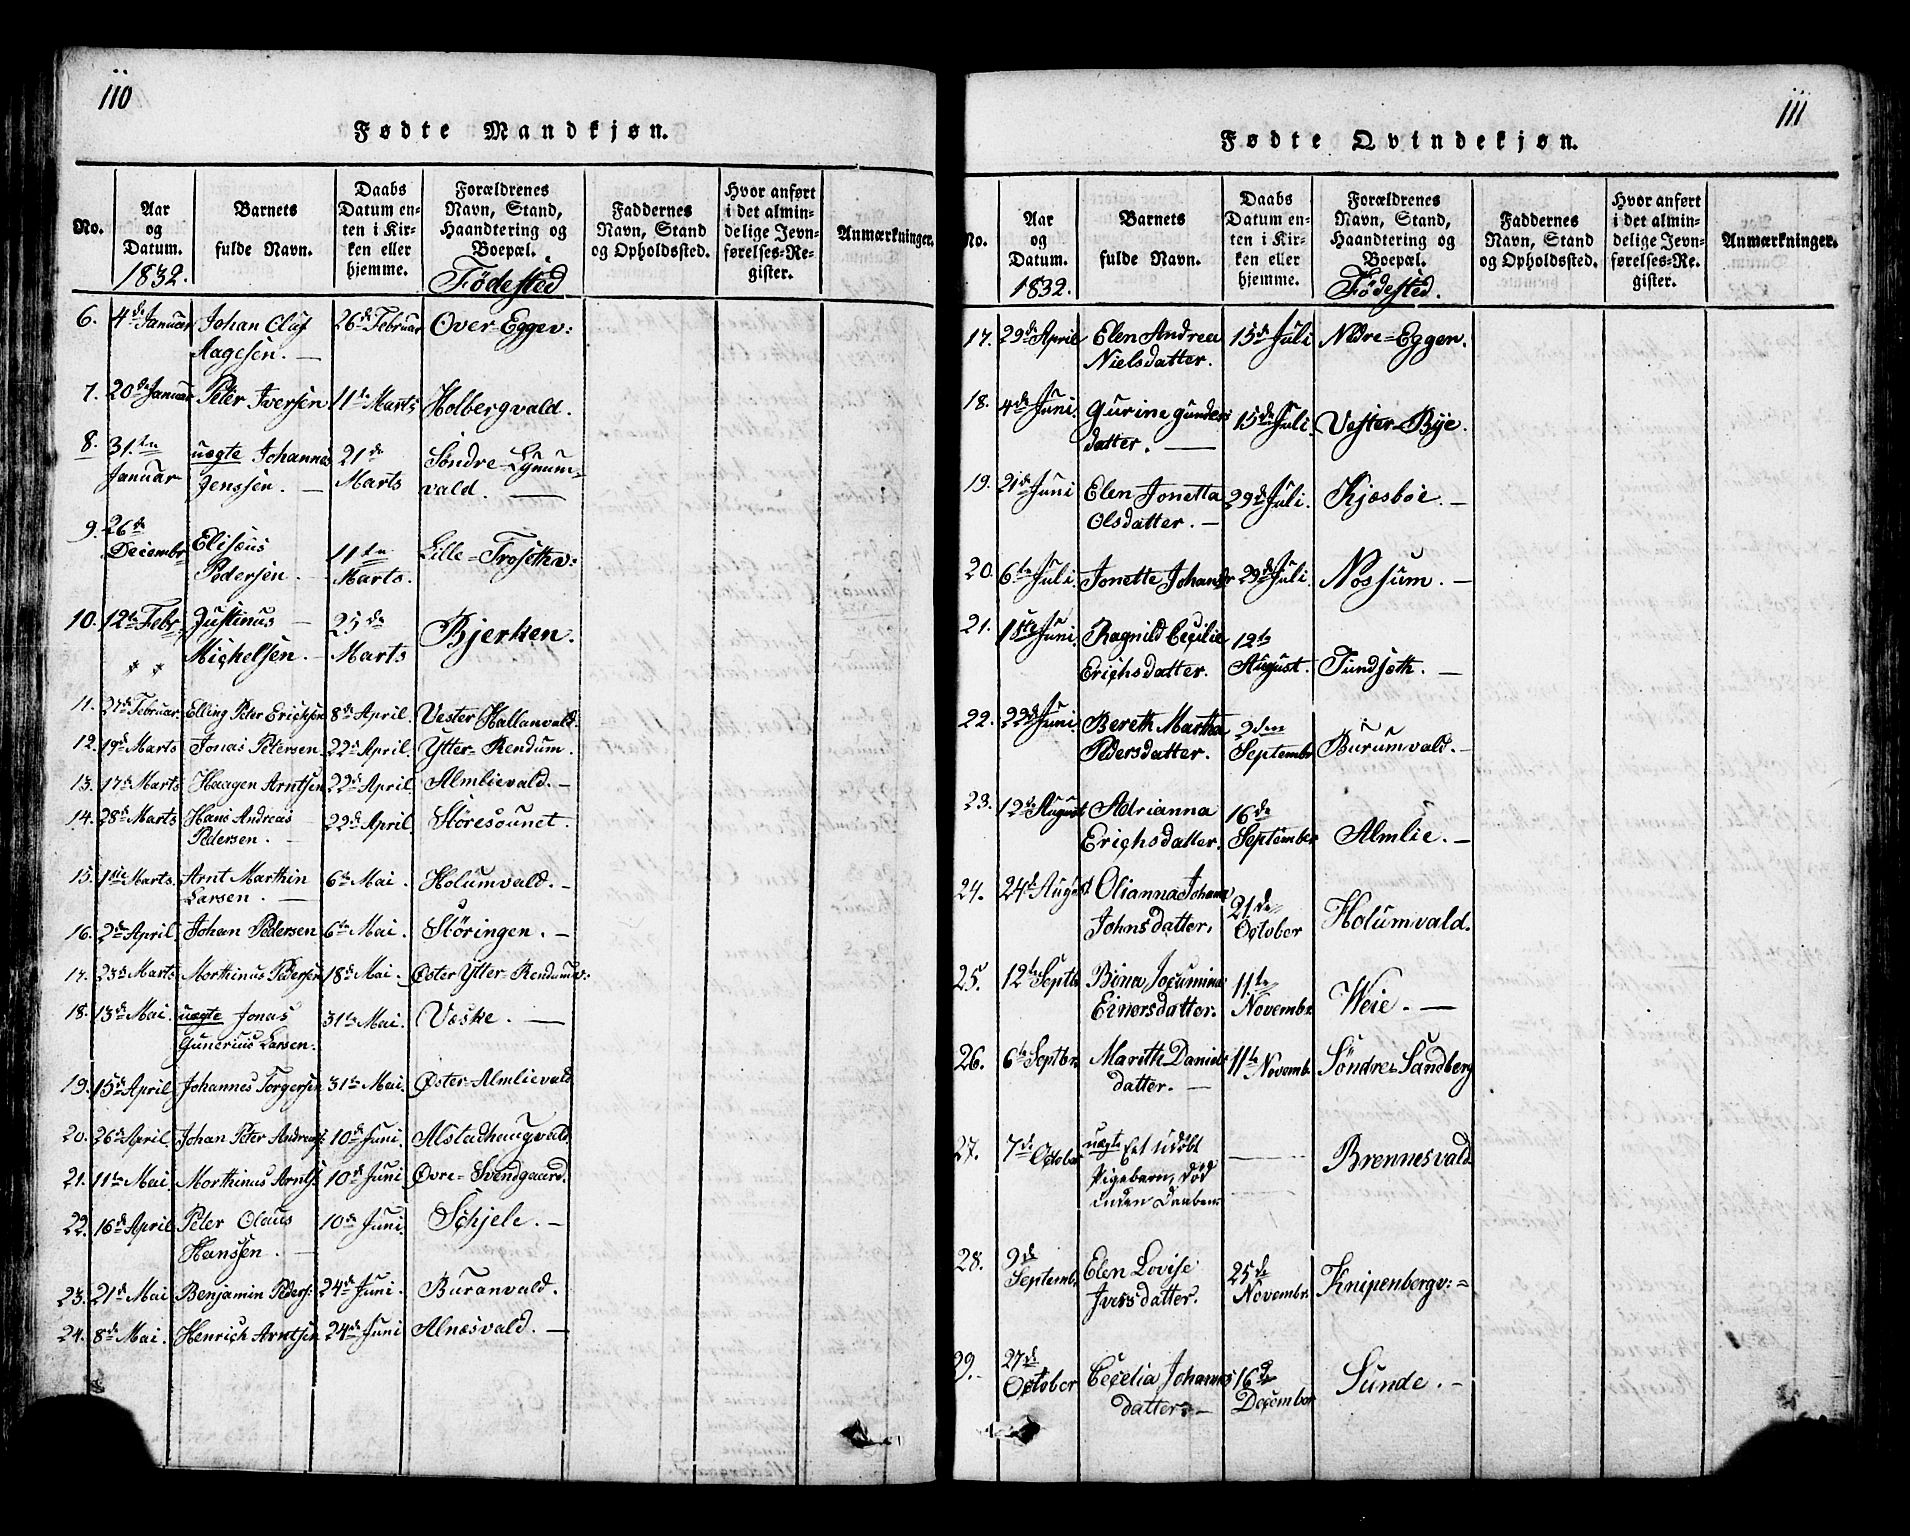 110
Fødte Mandkjøn.
No.
Aar
og
Datum.
1832.
Barnets
fulde Navn.
Daabs
Datum en-
ten i Kir-
ken eller
hjemme.
Forældrenes
Navn, Stand,
Haandtering og
Boepæl.
Födested
Faddernes
Navn, Stand
og Opholdssted.
Hvor anført
i det almin-
delige Jevn-
førelses-Re-
gister.
Anmærkninger.
6. 4de Januar Johan Oluf 26de Februar Over-Eggev:
Aagesen. —
7. 20de Januar Peter Iversen 11te Marts Holbergvald.
8. 31.te uægte Johannes 21de Söndre-Lynum-
Januar Jenssen. — Marts vald. —
9. 26de
Decembr Elisæus 11te Lille-Trosethv:
Pedersen. — Marts.
10. 12te Febr. Justinus — 25de Bjerken.
Michelsen. — Marts
11. 27de Februar. Elling Peter Erichsen 8de April. Vester Hallanvald.
12. 19de Marts Jonas Petersen 22de April. Ytter-Rendum.
13. 17de Marts Haagen Arntsen 22de April Almlievald. —
14. 28de Marts Hans Andreas 22de April. Störesounet.
Pedersen. —
15. 1ste Marts. Arnt Marthin 6te Mai. Holumvald. —
Larsen. —
16. 2de April. Johan Pedersen 6te Mai. Störingen. —
17. 23de Marts Morthinus Pedersen 18de Mai. Öster Ytter-Rendumv:
18. 13de Mai. uægte Jonas 31te Mai. Væske. —
Gunerius Larsen.
19. 15de April. Johannes Torgersen 31te Mai. Öster-Almlievald
20. 26de April. Johan Peter Andreas: 10de Juni. Alstadhaugvald.
21. 11te Mai. Morthinus Arnts: 10de Juni Övre-Svendgaard.
22. 16de April Peter Olaus 10de Juni. Schjele. —
Hanssen. —
23. 21de Mai Benjamin Peders: 24de Juni. Buranvald.
24. 8de Mai. Henrich Arntsen 24de Juni Alnæsvald. —
111
Fødte Qvindekjøn.
No.
Aar
og
Datum.
1832.
Barnets
fulde Navn.
Daabs
Datum en-
ten i Kir-
ken eller
hjemme.
Forældrenes
Navn, Stand,
Haandtering og
Boepæl.
Födested.
Faddernes
Navn, Stand
og Opholdssted.
Hvor anført
i det almin-
delige Jevn-
førelses-Re-
gister.
Anmærkninger.
17. 29de April Elen Andrea 15de Juli Nedre-Eggen.
Nielsdatter.
18. 4de Juni. Gurine Gunders 15de Juli. Vester-Bye.
datter. —
19. 21de Juni Elen Jonetta 29de Juli. Kjæsböe. —
Olsdatter. —
20. 6te Juli Jonette Johansdr 29de Juli. Nossum. —
21. 18te Juni. Ragnild Cecilie 12te
Erichsdatter. August. Tundseth. —
22. 22de Juni. Bereth Martha 2den
Pedersdatter. Septembr Burumvald. —
23. 12te August Adrianna 16de
Erichsdatter. September Almlie. —
24. 24de August. Olianna Johanna 21de
Johnsdatter. October Holumvald.
25. 12te Septbr Biena Jocumina 11te
Einersdatter. Novembr. Weie. —
26. 6te Septbr. Mareth Daniels 11te Novemb. Söndre Sandberg
datter. —
27. 7de October uægte Eet udöbt — Brennesvald
Pigebarn, död
inden Daaben.
28. 9de Elen Lovise 25de
Septemb. Iversdatter. Novembr. Knipenbergv: =
29. 27de Cecelia Johannes 16de Sunde. —
October datter. — December